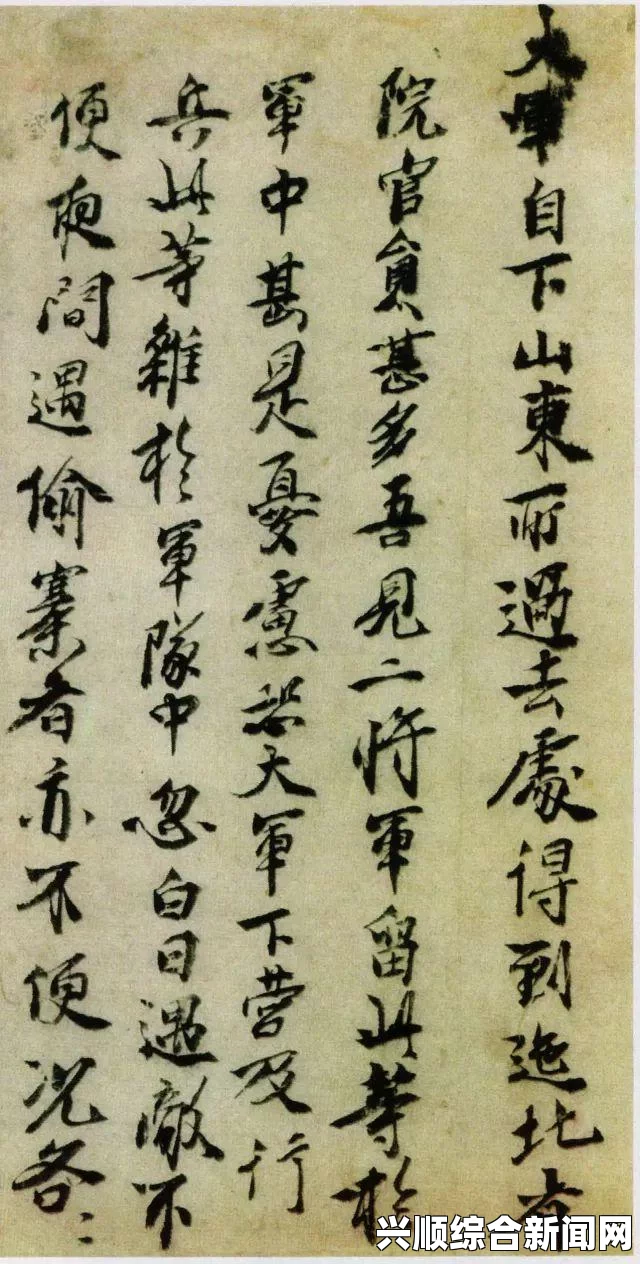 大軍自下山東所過去處得到迤北省
院官員甚多吾見二將軍留此等於
軍中甚是憂慮恐大軍下營及行
兵此等雜於軍隊中忽白日遇敵不
便夜間遇偷寨者亦不便況各〻
兴顺综合新闻网